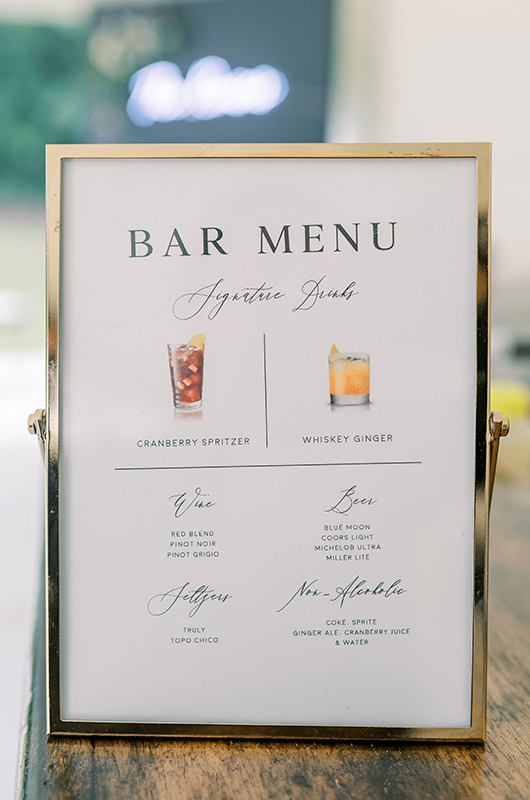 BAR MENU
Signature Drinks
CRANBERRY SPRITZER
WHISKEY GINGER
Wine
RED BLEND
PINOT NOIR
PINOT GRIGIO
Beer
BLUE MOON
COORS LIGHT
MICHELOB ULTRA
MILLER LITE
Seltzers
TRULY
TOPO CHICO
Non-Alcoholic
COKE, SPRITE
GINGER ALE, CRANBERRY JUICE
& WATER